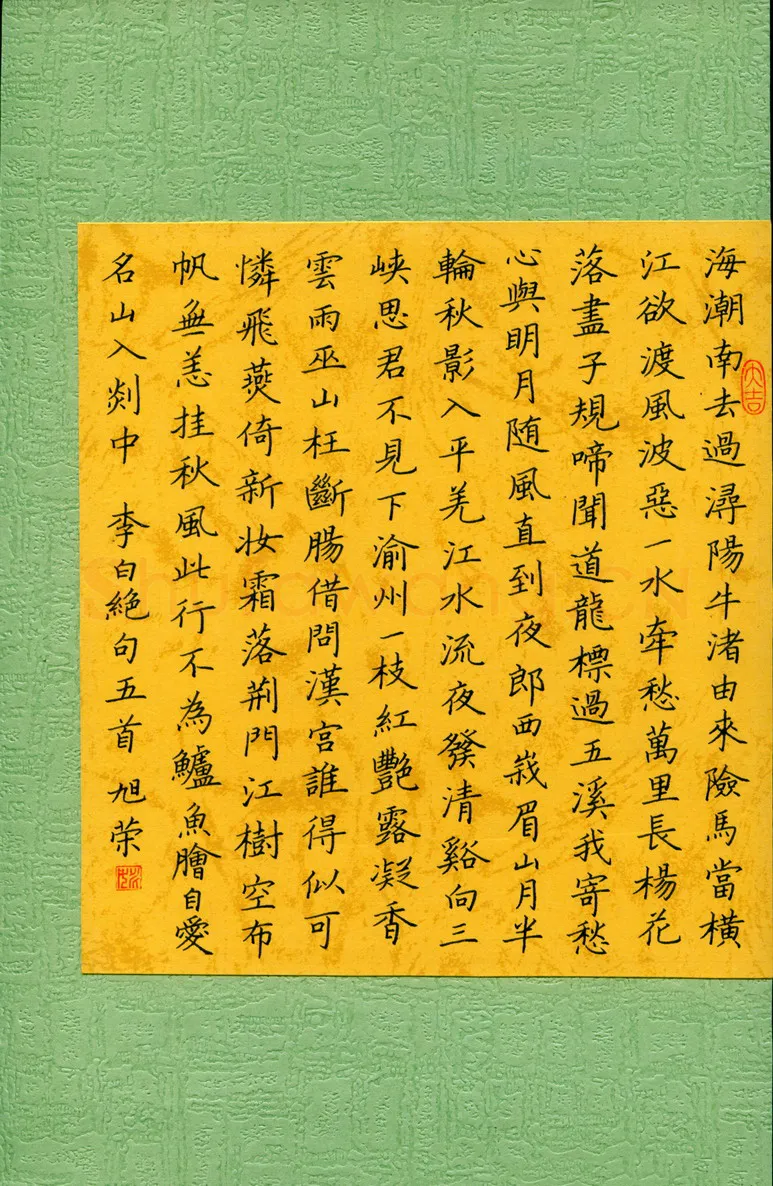 海潮南去過潯陽牛渚由來險馬當橫
江欲渡風波惡一水牽愁萬里長楊花
落盡子規啼聞道龍標過五溪我寄愁
心與明月随風直到夜郎西峩眉山月半
輪秋影入平羌江水流夜發清谿向三
峽思君不見下渝州一枝紅艷露凝香
雲雨巫山枉斷腸借問漢宮誰得似可
憐飛燕倚新妆霜落荆門江樹空布
帆無恙挂秋風此行不為鱸魚膾自愛
名山入剡中 李白絶句五首 旭荣
大吉
Shufawang.CN